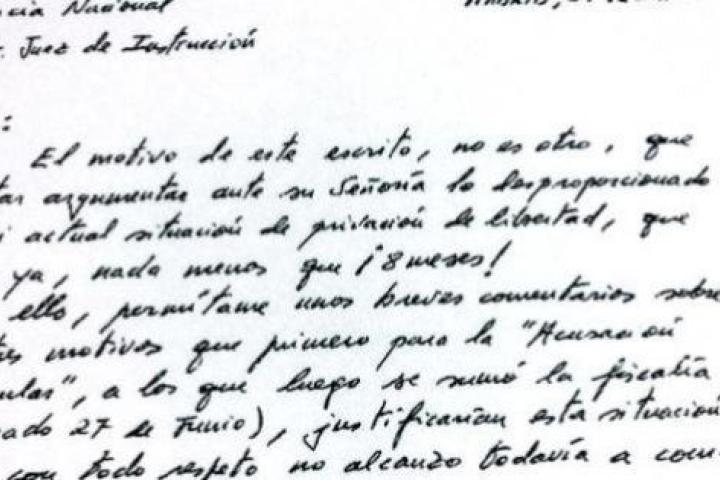 cia Nacional
. Juez de Instrucción
:
El motivo de este escrito, no es otro, que
tar argumentar ante su Señoría lo desproporcionado
i actual situación de privación de libertad, que
ya, nada menos que ¡8 meses!
ello, permítame unos breves comentarios sobre
tres motivos que primero para la "Acusación
ular", a los que luego se sumó la fiscalía
ado 27 de Junio), justificarían esta situación
con todo respeto no alcanzo todavía a com-